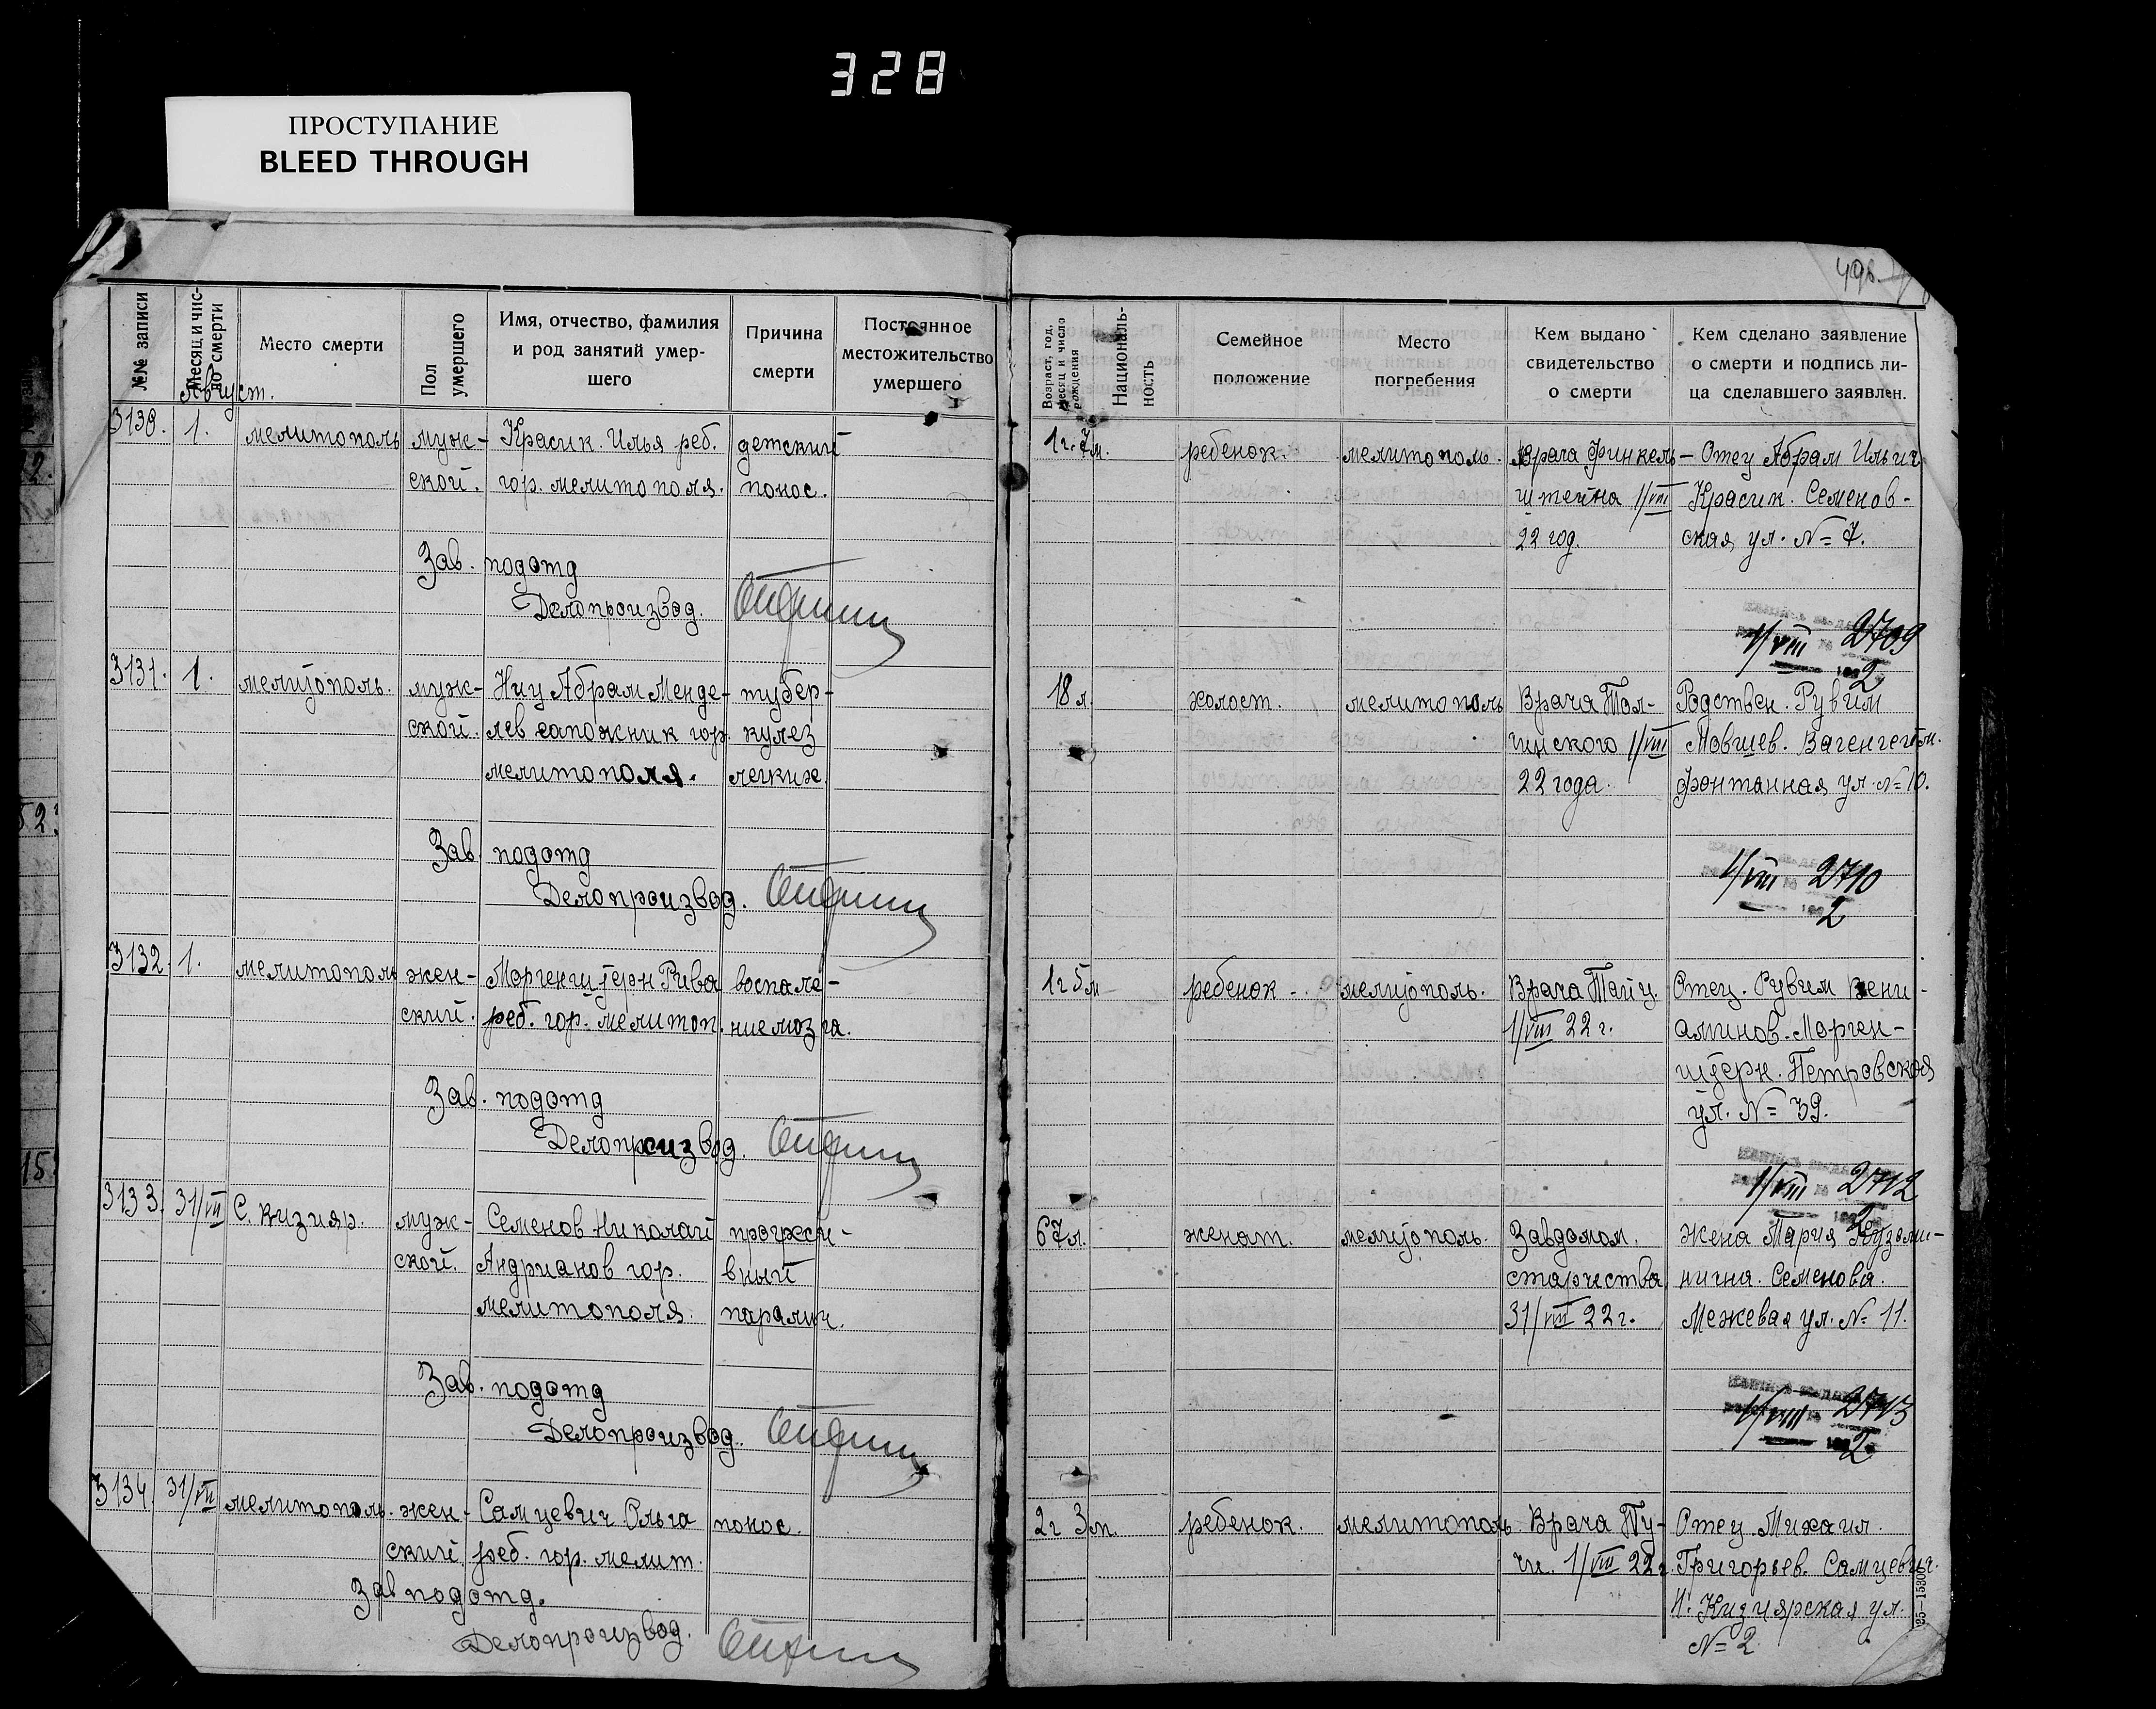 328
ПРОСТУПАНИЕ
BLEED THROUGH
498
№№ записи
Месяц и число смерти
Место смерти
Пол умершего
Имя, отчество, фамилия
и род занятий умер-
шего
Причина
смерти
Постоянное
местожительство
умершего
Возраст, год,
месяц и число
рождения
Националь-
ность
Семейное
положение
Место
погребения
Кем выдано
свидетельство
о смерти
Кем сделано заявление
о смерти и подпись ли-
ца сделавшего заявлен.
Август.
3130. 1. мелитополь муж- Красик. Илья реб. детский 1г. 7м. ребенок. мелитополь. Врача Финкель- Отец Абрам Ильич
ской. гор. мелитополя. понос. штейна 1/VIII Красик. Семенов-
22 год. ская ул. № 7.
Зав. подотд
Делопроизвод.
1/VIII 2709
2
3131. 1. мелитополь. муж- Ниц Абрам Менде- тубер- 18 л. холост. мелитополь Врача Тол- Родствен. Рувим
ской. лев сапожник гор. кулез чинского 1/VIII Мовшев. Вагенгейм.
мелитополя. легких. 22 года. Фонтанная ул. № 10.
Зав. подотд
Делопроизвод.
1/VIII 2710
2
3132. 1. мелитополь жен- Моргенштерн Рива воспале- 1г 5м ребенок. мелитополь. Врача Тайц. Отец. Рувим Вени-
ский. реб. гор. мелитоп. ние мозга. 1/VIII 22 г. аминов. Морген-
штерн. Петровская
ул. № 39.
Зав. подотд
Делопроизвод.
1/VIII 2712
2
3133. 31/VII С. Кизияр. муж- Семенов Николай прогреси- 67л. женат. мелитополь. Завдомом. Жена Мария Кузьми-
ской. Андрианов гор. вный старчества нична. Семенова.
мелитополя. паралич. 31/VII 22 г. Межевая ул. № 11.
Зав. подотд
Делопроизвод.
1/VIII 2713
2
3134. 31/VII мелитополь. жен- Самцевич Ольга понос. 2г 3м. ребенок. мелитополь. Врача Ту-  Отец Михаил.
ский. реб. гор. мелит. 1/VIII 22 г. Григорьев. Самцевич.
Кизиярская ул.
№ 2
Зав подотд.
Делопроизвод.